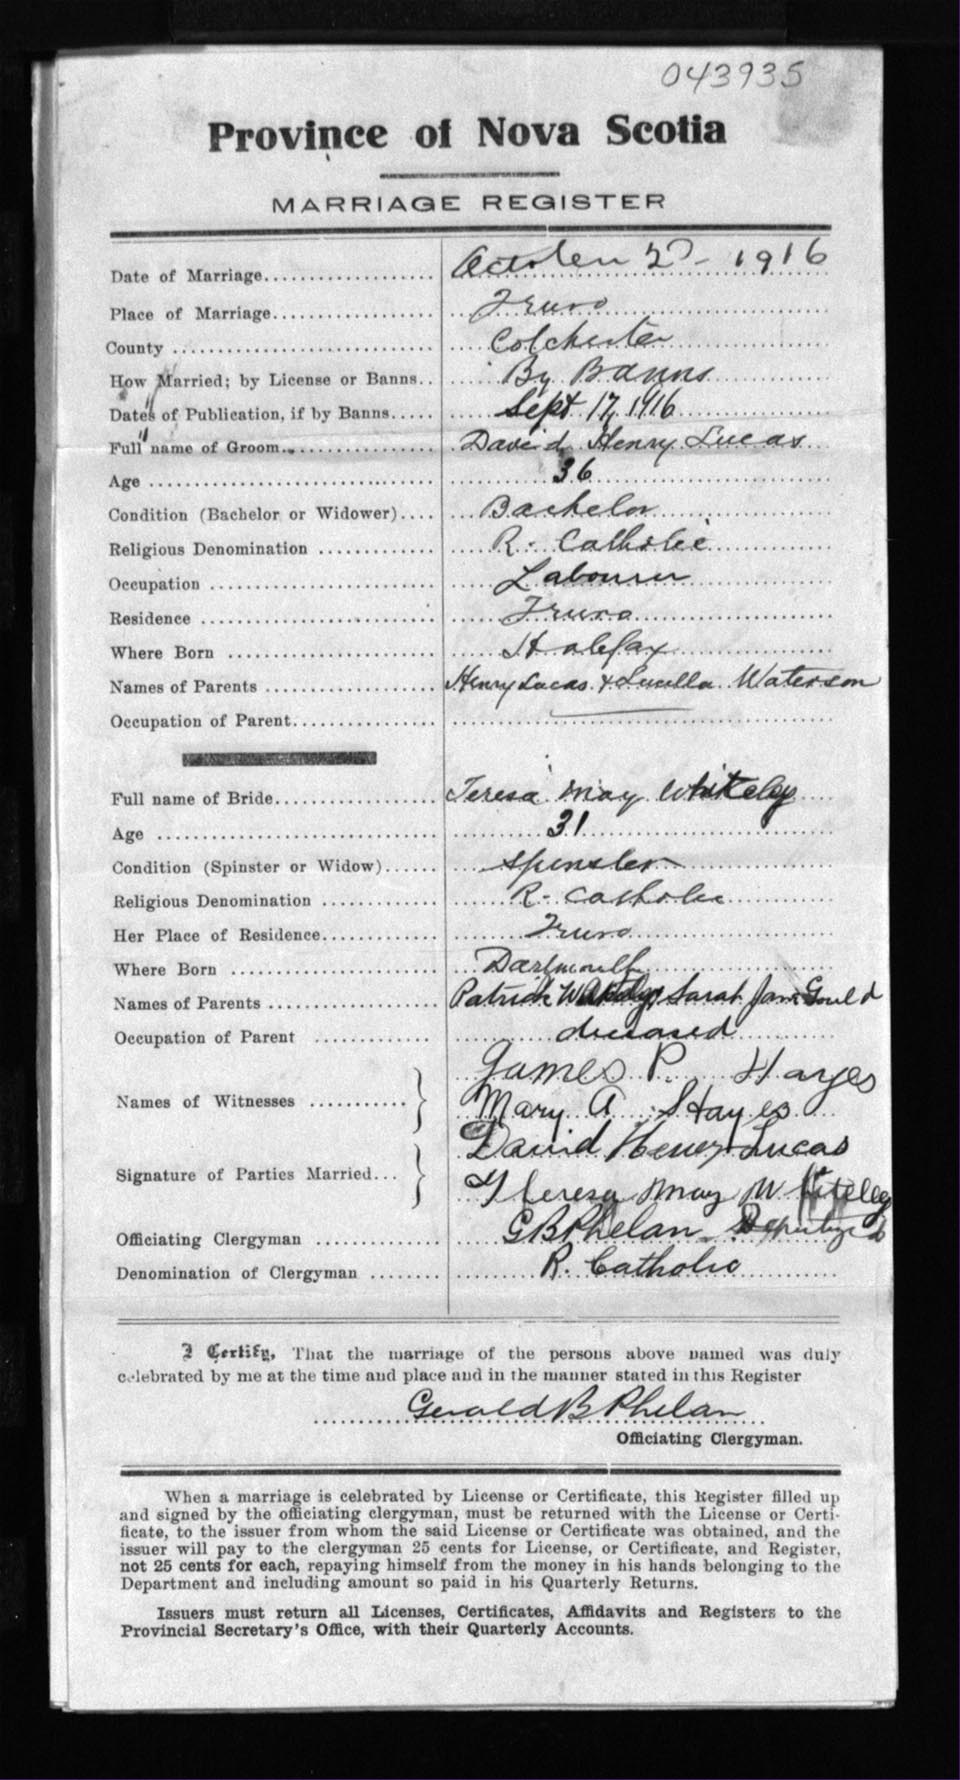 043935
Province of Nova Scotia
MARRIAGE REGISTER
Date of Marriage October 2 - 1916
Place of Marriage Truro
County Colchester
How Married; by License or Banns By Banns
Dates of Publication, if by Banns Sept 17, 1916
Full name of Groom David Henry Lucas
Age 36
Condition (Bachelor or Widower) Bachelor
Religious Denomination R. Catholic
Occupation Labourer
Residence Truro
Where Born Halifax
Names of Parents Henry Lucas & Lucilla Waterson
Occupation of Parent
Full name of Bride Teresa May Whiteley
Age 31
Condition (Spinster or Widow) Spinster
Religious Denomination R. Catholic
Her Place of Residence Truro
Where Born Dartmouth
Names of Parents Patrick Sarah Jane Gould
Occupation of Parent deceased
Names of Witnesses James P. Hayes
Mary A Hayes
Signature of Parties Married David Henry Lucas
Theresa May Whiteley
Officiating Clergyman G B Phelan
Denomination of Clergyman R. Catholic
I Certify, That the marriage of the persons above named was duly
celebrated by me at the time and place and in the manner stated in this Register
Gerald B Phelan
Officiating Clergyman.
When a marriage is celebrated by License or Certificate, this Register filled up
and signed by the officiating clergyman, must be returned with the License or Certi-
ficate, to the issuer from whom the said License or Certificate was obtained, and the
issuer will pay to the clergyman 25 cents for License, or Certificate, and Register,
not 25 cents for each, repaying himself from the money in his hands belonging to the
Department and including amount so paid in his Quarterly Returns.
Issuers must return all Licenses, Certificates, Affidavits and Registers to the
Provincial Secretary's Office, with their Quarterly Accounts.